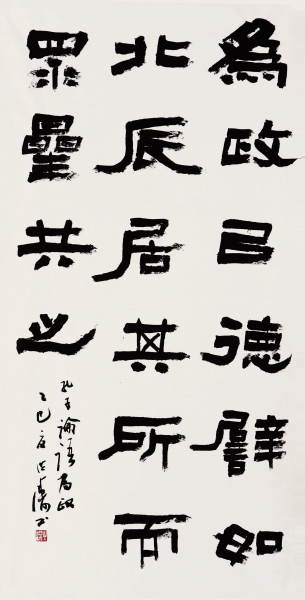 為政㠯德譬如
北辰居其所而
眾星共之
孔子論語為政
乙巳